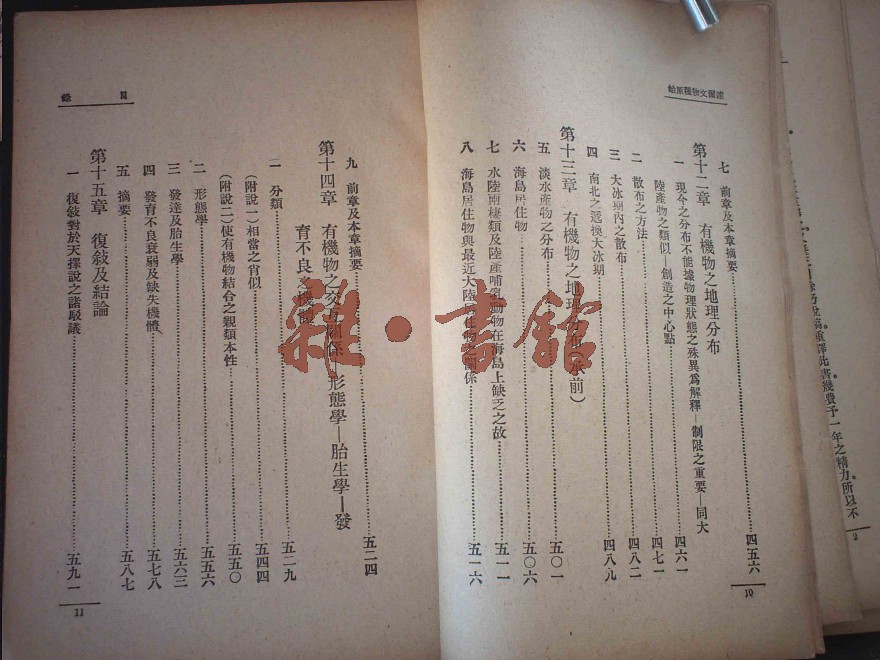 達爾文物種原始
七 前章及本章摘要 四五六
第十二章 有機物之地理分布
一 現今之分布不能據物理狀態之殊異爲解釋—制限之重要—同大
陸產物之類似—創造之中心點 四六一
二 散布之方法 四七一
三 大冰期內之散布 四八二
四 南北之遞換大冰期 四八九
第十三章 有機物之地理分布(承前)
五 淡水產物之分布 五〇一
六 海島居住物 五〇六
七 水陸兩棲類及陸產哺乳動物在海島上缺乏之故 五一一
八 海島居住物與最近大陸居住物之關係 五一六
10
目錄
九 前章及本章摘要 五二四
第十四章 有機物之交互關係—形態學—胎生學—發
育不良之機體
一 分類 五二九
(附說一)相當之肖似 五四四
(附說二)使有機物結合之親類本性 五五〇
二 形態學 五五六
三 發達及胎生學 五六三
四 發育不良衰弱及缺失機體 五七八
五 摘要 五八七
第十五章 復敍及結論
一 復敍對於天擇說之諸駁議 五九一
11
重譯此書幾費予一年之精力。所以不
2
雜·書館